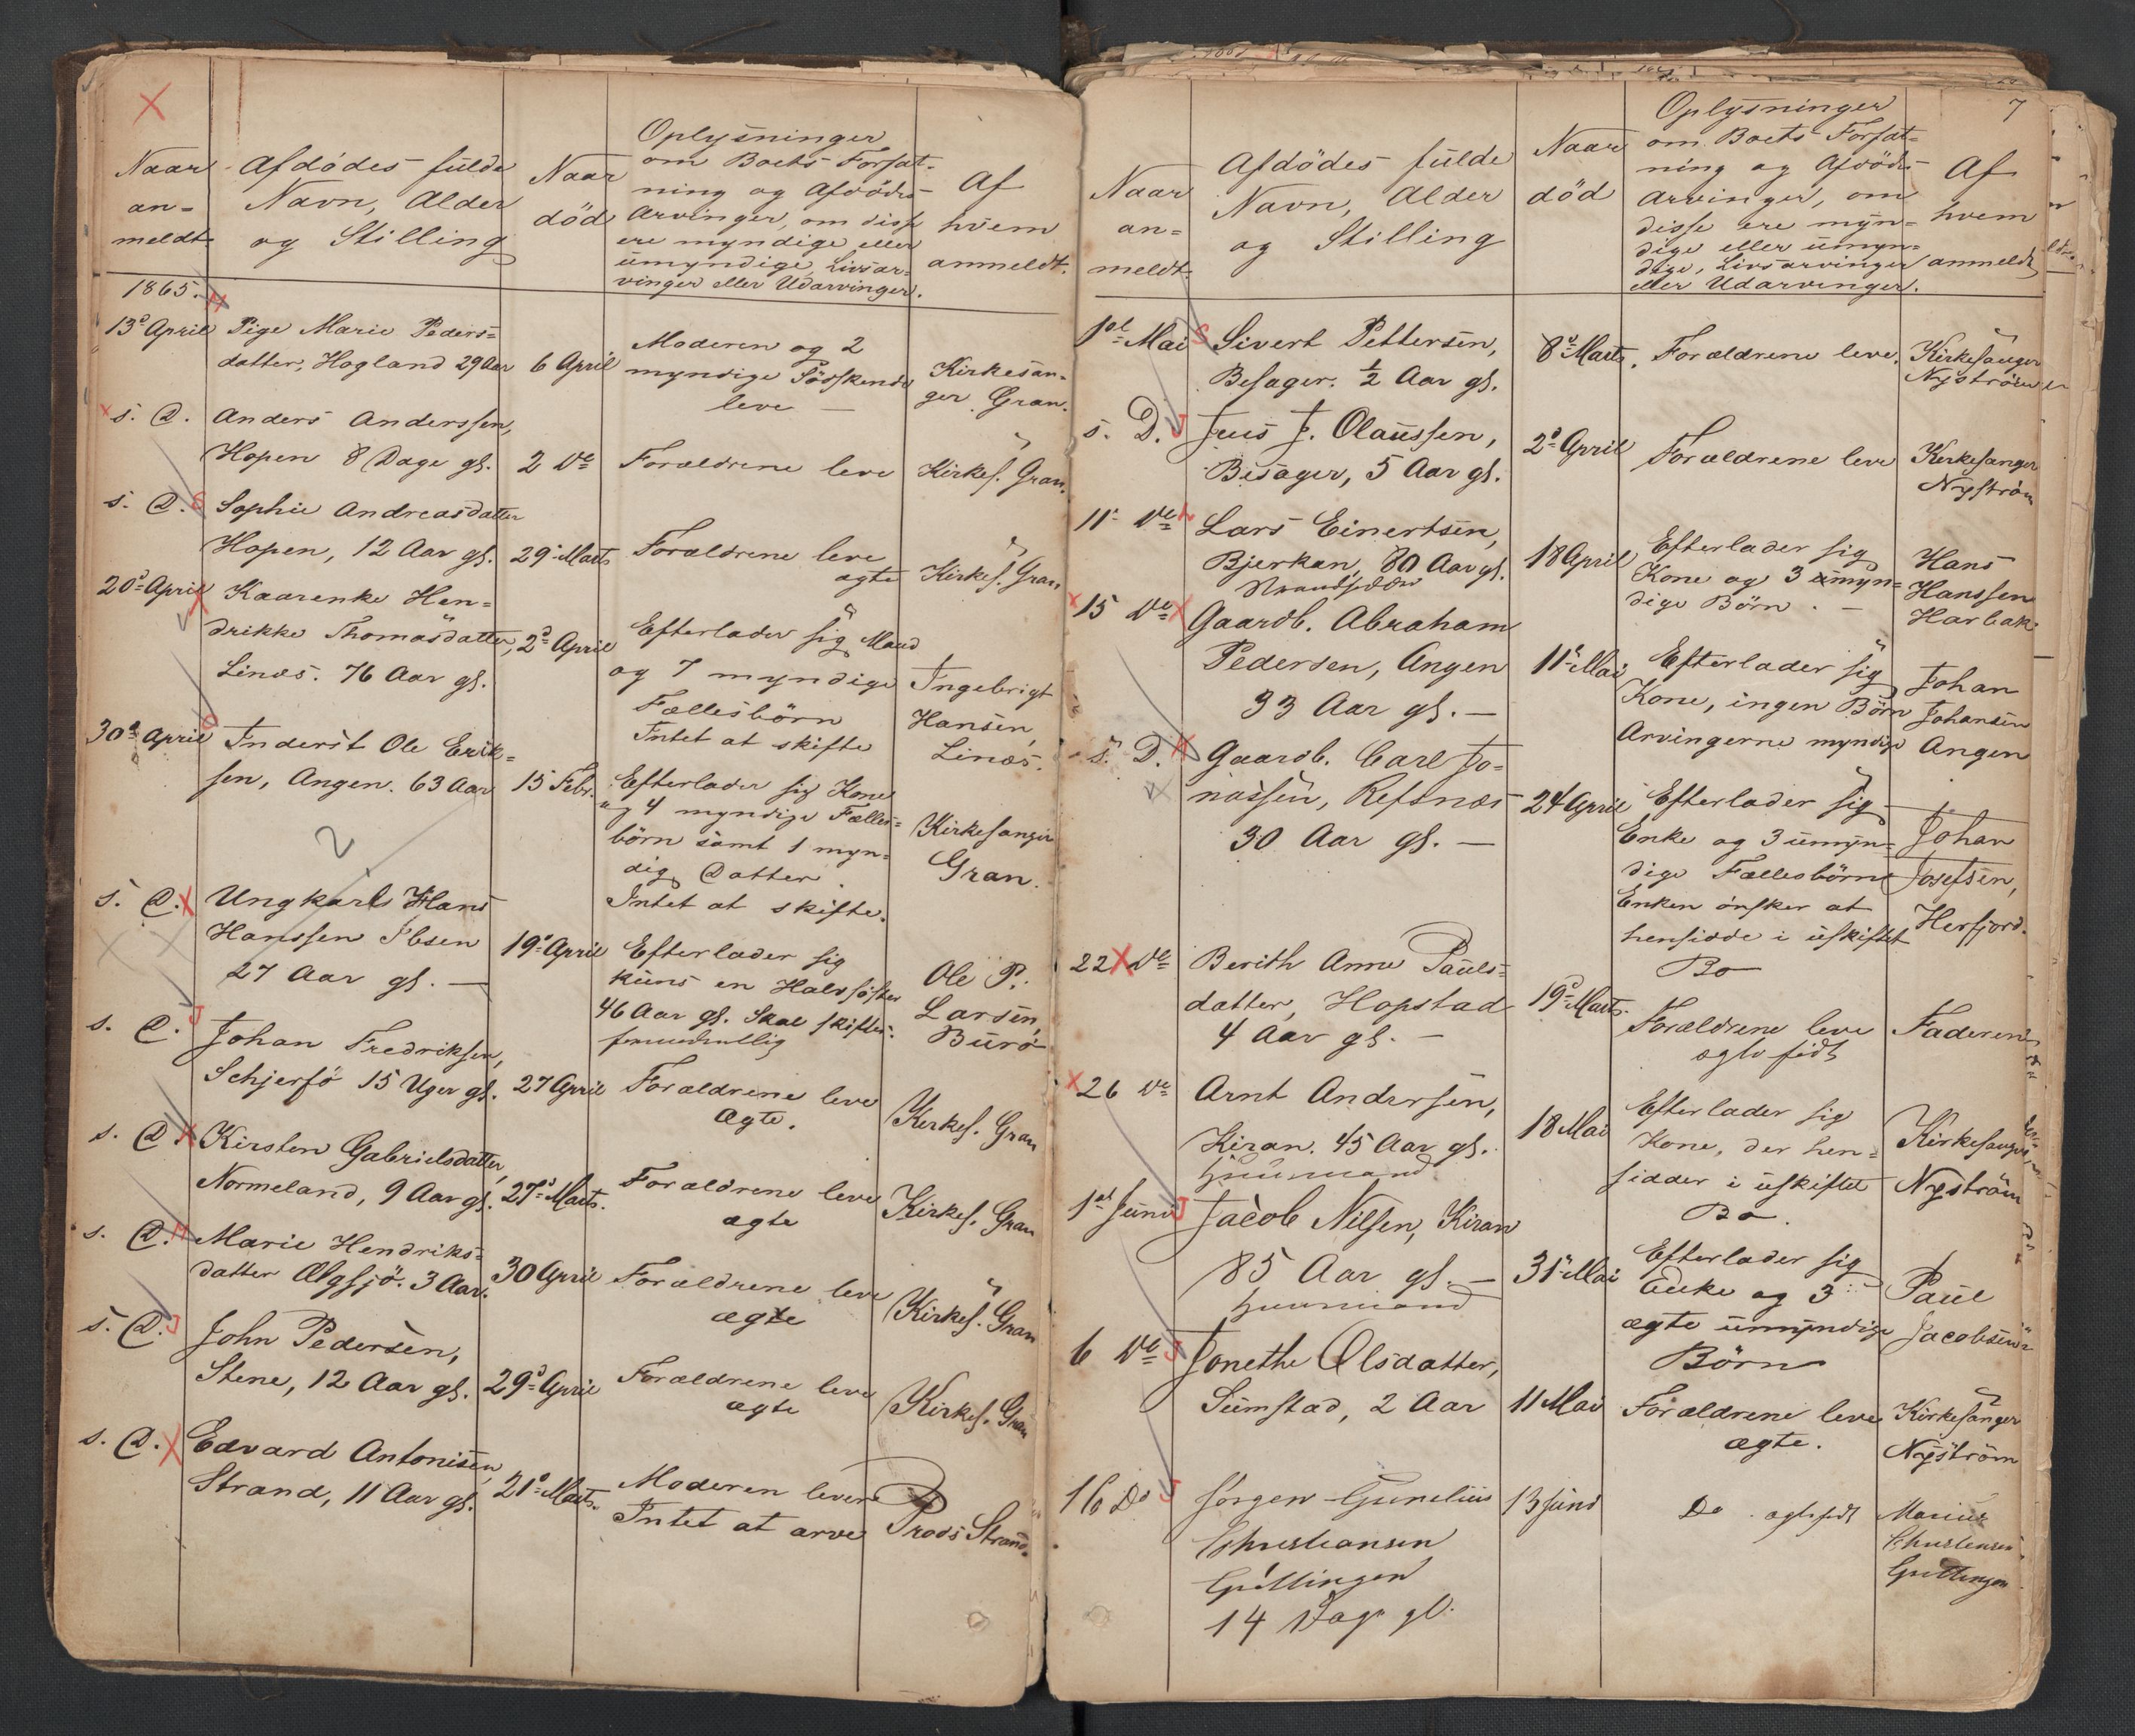 Naar
an-
meldt
Afdödes fulde
Navn, Alder
og Stilling
Naar
död
Oplysninger
om Boets Forfat-
ning og Afdödes
Arvinger, om disse
ere myndige eller
umyndige, Livsar-
vinger eller Udarvinger.
Af
hvem
anmeldt.
1865.
13de April Pige Marie Peders-
datter, Hogland 29 Aar 6 April
Moderen og 2
myndige Södskende
leve —
Kirkesan-
ger Gran.
s. D. Anders Anderssen,
Hopen 8 Dage gl. 2 Do Forældrene leve Kirkes. Gran.
s. D. Sophie Andreasdatter
Hopen, 12 Aar gl. 29 Marts Forældrene leve
ægte Kirkes. Gran
20de April Kaarenke Hen-
drikke Thomasdatter, 2den April
Linæs. 76 Aar gl.
Efterlader sig Mand
og 7 myndige
Fællesbörn
Intet at skifte
Ingebrigt
Hansen,
Linæs.
30de April Inderst Ole Erik-
sen, Angen. 63 Aar 15 Febr.
Efterlader sig Kone
og 4 myndige Fælles-
börn samt 1 myn-
dig Datter.
Intet at skifte.
Kirkesanger
Gran.
2
s. D. Ungkarl Hans
Hanssen Ibsen
27 Aar gl. —
19de April
Efterlader sig
kuns en Halvsöster
46 Aar gl. Skal skiftes.
Ole P.
Larsen,
Burö
s. D. Johan Fredriksen,
Schjerfö 15 Uger gl. 27 April Forældrene leve
Ægte. Kirkes. Gran
s. D. Kirsten Gabrielsdatter,
Normeland, 9 Aar gl. 27de Marts. Forældrene leve
ægte Kirkes. Gran
s. D. Marie Hendriks-
datter Ælgsjö. 3 Aar. 30 April Forældrene leve
ægte Kirkes. Gran
s. D. John Pedersen,
Stene, 12 Aar gl. 29de April Forældrene leve
ægte Kirkes. Gran
s. D. Edvard Antonisen,
Strand, 11 Aar gl. 21de Marts. Moderen lever
Intet at arve Præds Strand.
7
Naar
an-
meldt
Afdödes fulde
Navn, Alder
og Stilling
Naar
död
Oplysninger
om Boets Forfat-
ning og Afdödes
Arvinger, om
disse ere myn-
dige eller umyn-
dige, Livsarvinger
eller Udarvinger.
Af
hvem
anmeldt
1ste Mai Sivert Pettersen,
Besager. ½ Aar gl.
8de Marts. Forældrene leve. Kirkesanger
Nyström
s. D. Jens J. Olaussen,
Besager, 5 Aar gl.
2den April Forældrene leve Kirkesanger
Nyström
11 Do Lars Einertsen,
Bjerkan, 80 Aar gl.
18 April
Efterlader sig
Kone og 3 myn-
dige Börn. —
Hans
Hanssen
Harbak
15 Do Gaardb. Abraham
Pedersen, Angen
33 Aar gl. —
11te Mai
Efterlader sig
Kone, ingen Börn
Arvingerne myndige
Johan
Johansen
Angen
s. D. Gaardb. Carl Jo-
nassen, Refsnæs
30 Aar gl. —
24 April
Efterlader sig
Enke og 3 umyn-
dige Fællesbörn
Enken önsker at
hensidde i uskiftet
Bo
Johan
Josefsen,
Herfjord.
22 Do Berith Anne Pauls-
datter, Hopstad
4 Aar gl. —
19de Marts.
Forældrene leve
Faderen
26 Do Arnt Andersen,
Kiran. 45 Aar gl.
Huusmand
18 Mai
Efterlader sig
Kone, der hen-
sidder i uskiftet
Bo.
Kirkesanger
Nyström
1ste Juni Jacob Nilsen, Kiran
85 Aar gl. —
Huusmand
31te Mai
Efterlader sig
Enke og 3
ægte umyndige
Börn
Paul
Jacobsen
6 Do Jonethe Olsdatter,
Sumstad, 2 Aar 11 Mai
Forældrene leve
ægte.
Kirkesanger
Nyström
16 Do Jörgen Gunelius
Christiansen
Guttingen
14 Dage gl.
13 Juni
Do
Marius
Christensen
Guttingen